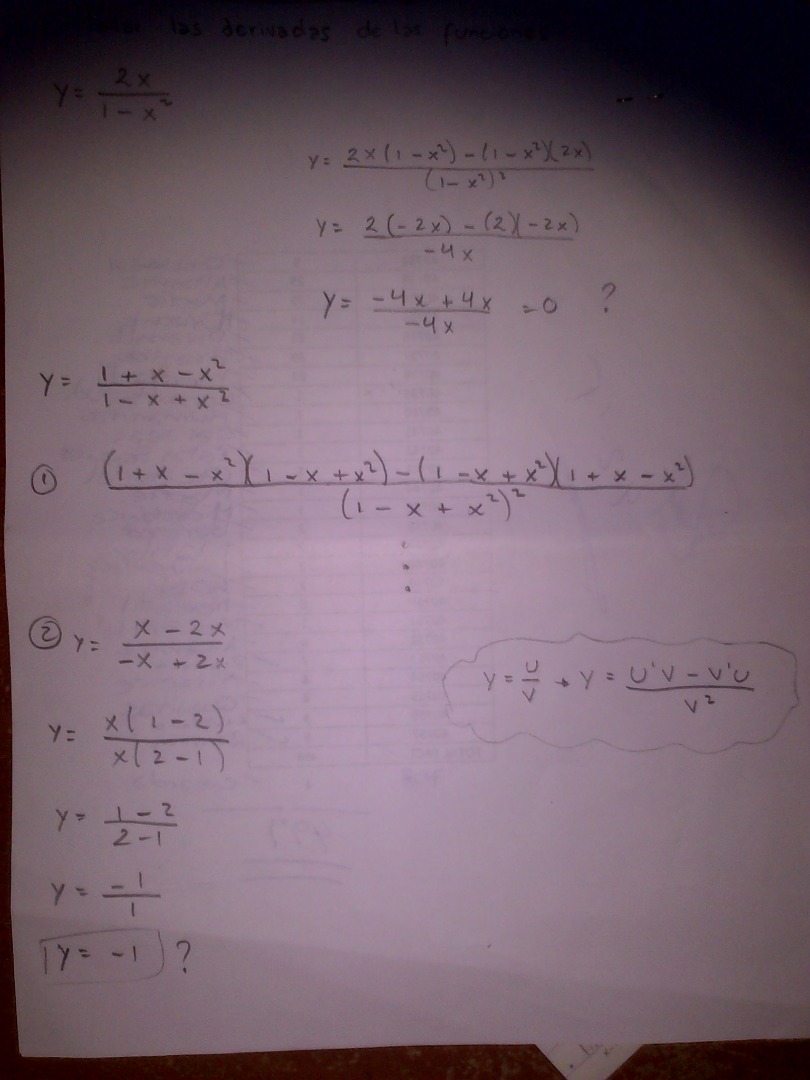 las derivadas de las funciones
y = 2x / 1 - x²
y = 2x(1 - x²) - (1 - x²)(2x) / (1 - x²)²
y = 2(-2x) - (2)(-2x) / -4x
y = -4x + 4x / -4x = 0 ?
y = 1 + x - x² / 1 - x + x²
① (1 + x - x²)(1 - x + x²) - (1 - x + x²)(1 + x - x²) / (1 - x + x²)²
② y = x - 2x / -x + 2x
y = u / v → y = u'v - v'u / v²
y = x(1 - 2) / x(2 - 1)
y = 1 - 2 / 2 - 1
y = -1 / 1
y = -1 ?